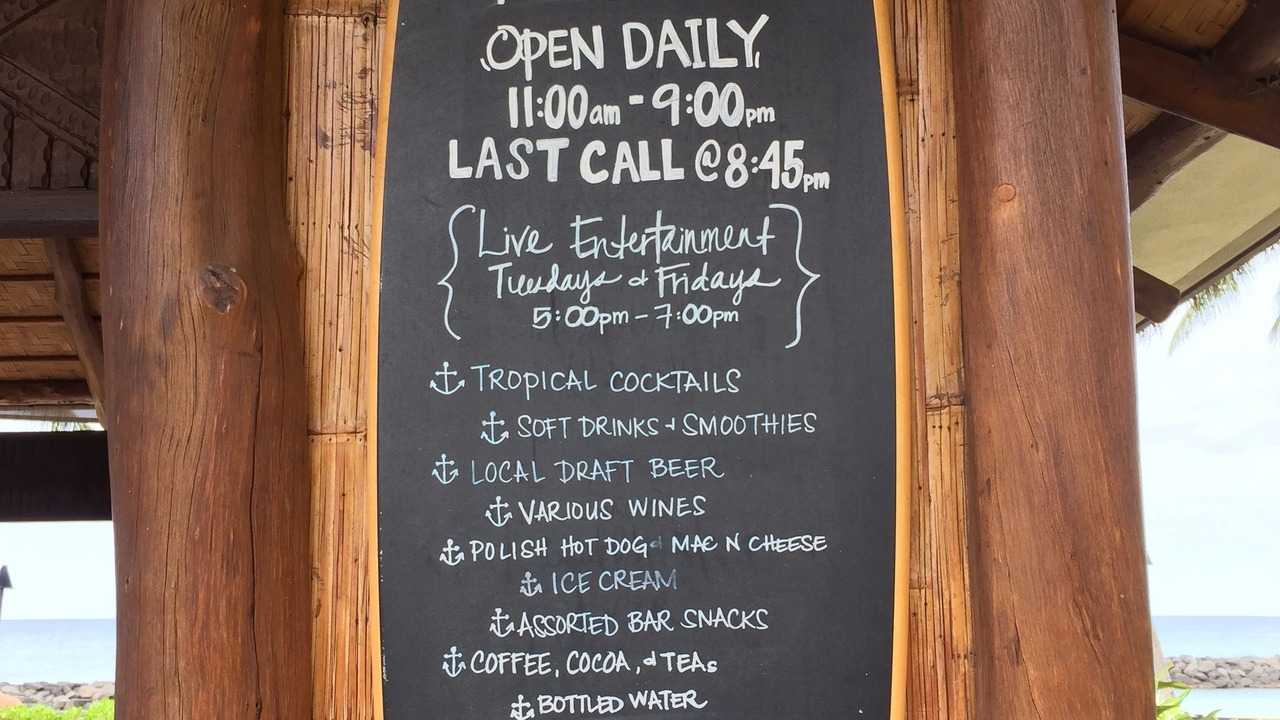 OPEN DAILY
11:00am - 9:00pm
LAST CALL @ 8:45pm
Live Entertainment
Tuesdays & Fridays
5:00pm - 7:00pm
TROPICAL COCKTAILS
SOFT DRINKS & SMOOTHIES
LOCAL DRAFT BEER
VARIOUS WINES
POLISH HOT DOG & MAC N CHEESE
ICE CREAM
ASSORTED BAR SNACKS
COFFEE, COCOA, & TEAs
BOTTLED WATER